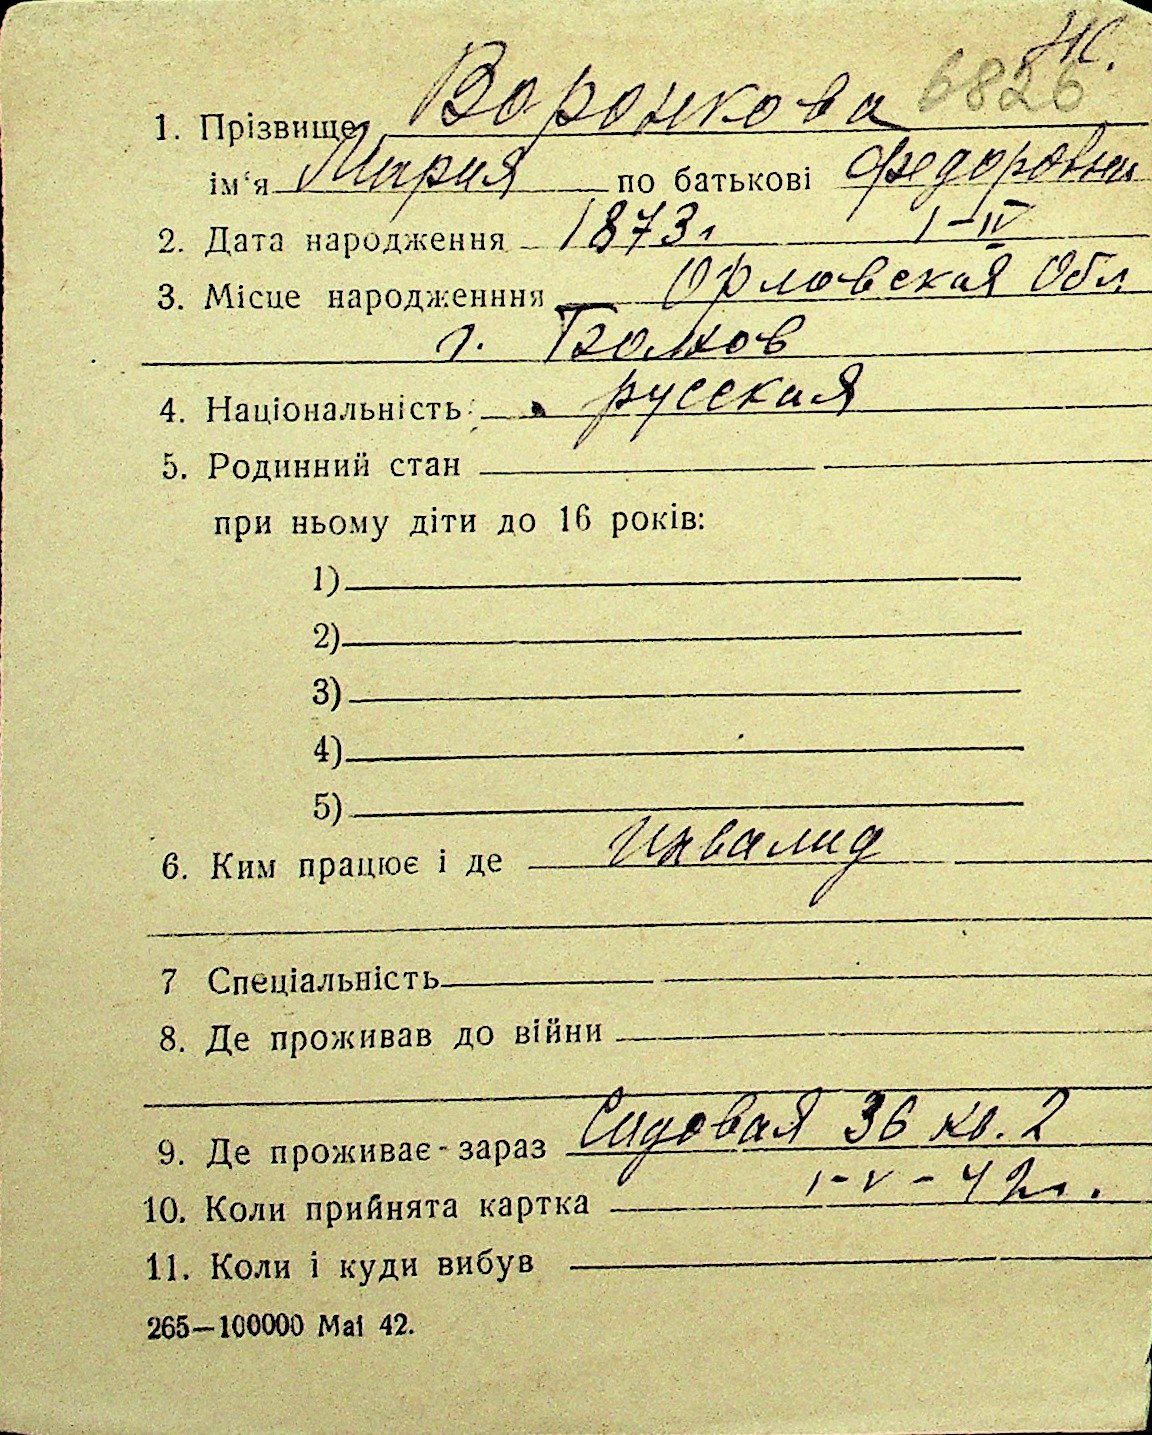 Ж.
6826
1. Прізвище Воронкова
ім'я Мария по батькові Федоровна
2. Дата народження 1873г 1-IV
3. Місце народженння Орловская Обл
г. Болхов
4. Національність русская
5. Родинний стан
при ньому діти до 16 років:
1)
2)
3)
4)
5)
6. Ким працює і де Инвалид
7 Спеціальність
8. Де проживав до війни
9. Де проживає-зараз Садовая 36 кв. 2
10. Коли прийнята картка 1-V-42г.
11. Коли і куди вибув
265—100000 Mai 42.